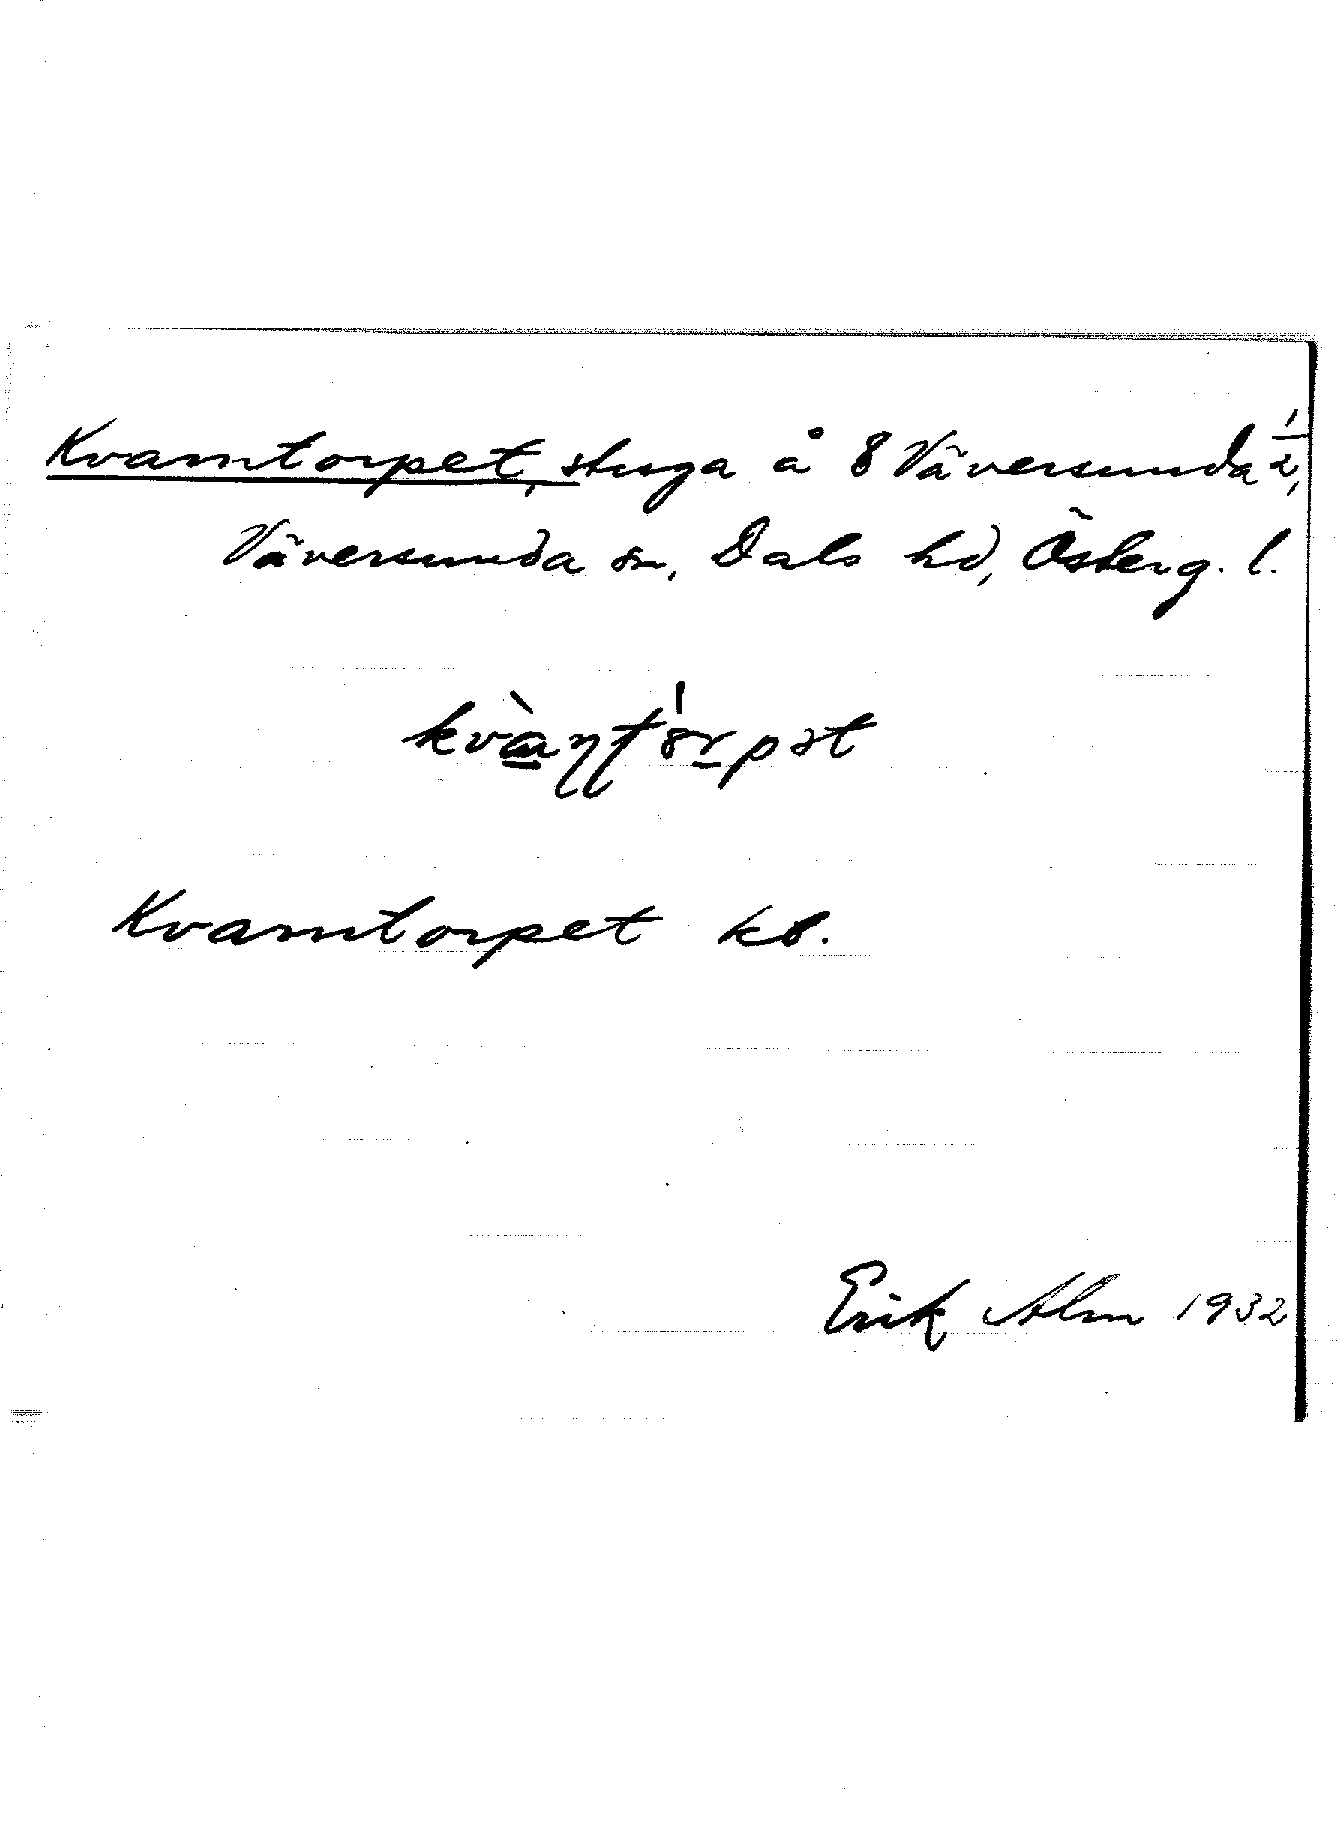 Kvarntorpet, stuga å 8 Väversunda 1/2,
Väversunda sn, Dals hd, Österg. l.
Kvarntorpet kb.
Erik Alm 1932